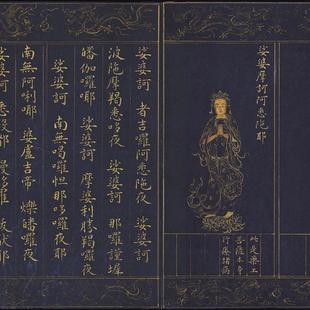 娑婆摩訶阿悉陁耶
此是藥王
菩薩本身
行療諸病
娑婆訶 者吉囉阿悉陁夜 娑婆訶
波陁摩羯悉哆夜 娑婆訶 那囉謹墀
皤伽囉耶 娑婆訶 摩婆利勝羯囉夜
娑婆訶 南無喝囉怛那哆囉夜耶
南無阿唎耶 婆盧吉帝 爍皤囉夜
娑婆訶 悉殿都 漫哆囉 跋馱耶